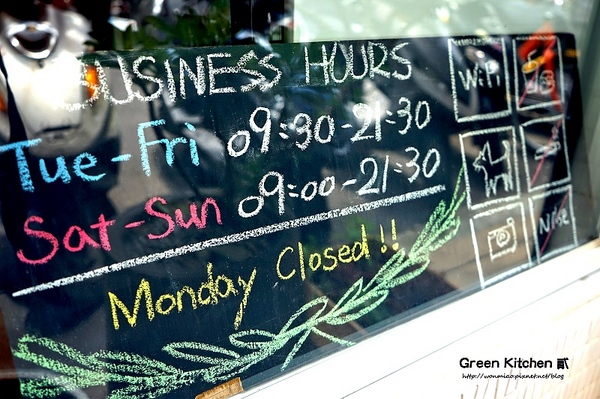 BUSINESS HOURS
Tue-Fri 09:30-21:30
Sat-Sun 09:00-21:30
Monday Closed!!
WiFi
Noise
Green Kitchen 貳
http://wonmiao.pixnet.net/blog